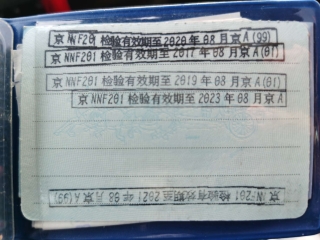 京 NNF201 检验有效期至 2020 年 08 月 京 A (99)
京 NNF201 检验有效期至 2017 年 08 月 京 A (01)
京 NNF201 检验有效期至 2019 年 08 月 京 A (01)
京 NNF201 检验有效期至 2023 年 08 月 京 A
京 NF201 检验有效期至 2021 年 08 月 京 A (99)